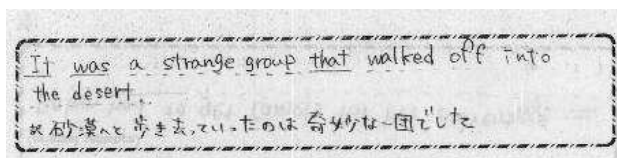 It was a strange group that walked off into
the desert
※砂漠へと歩き去っていったのは奇妙な一団でした